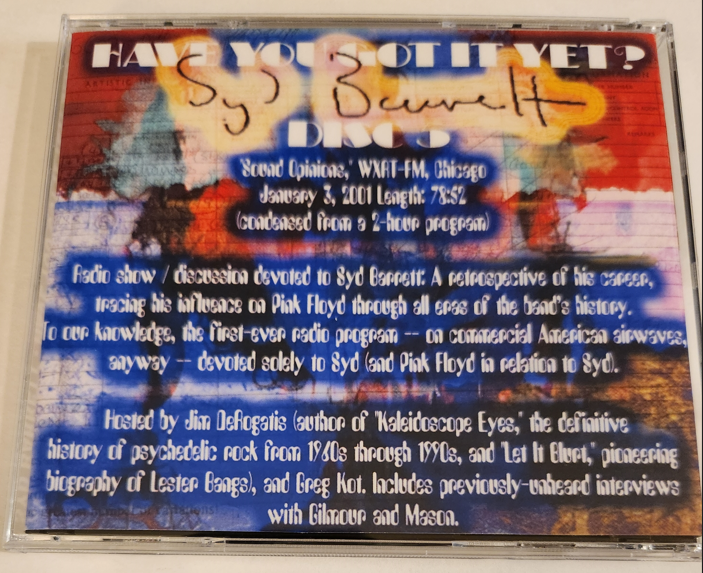 HAVE YOU GOT IT YET?
Syd Barrett
DISC 5
"Sound Opinions," WXRT-FM, Chicago
January 3, 2001 Length: 78:52
(condensed from a 2-hour program)
Radio show / discussion devoted to Syd Barrett: A retrospective of his career,
tracing his influence on Pink Floyd through all eras of the band's history.
To our knowledge, the first-ever radio program -- on commercial American airwaves,
anyway -- devoted solely to Syd (and Pink Floyd in relation to Syd).
Hosted by Jim DeRogatis (author of "Kaleidoscope Eyes," the definitive
history of psychedelic rock from 1960s through 1990s, and "Let It Blurt," pioneering
biography of Lester Bangs), and Greg Kot. Includes previously-unheard interviews
with Gilmour and Mason.